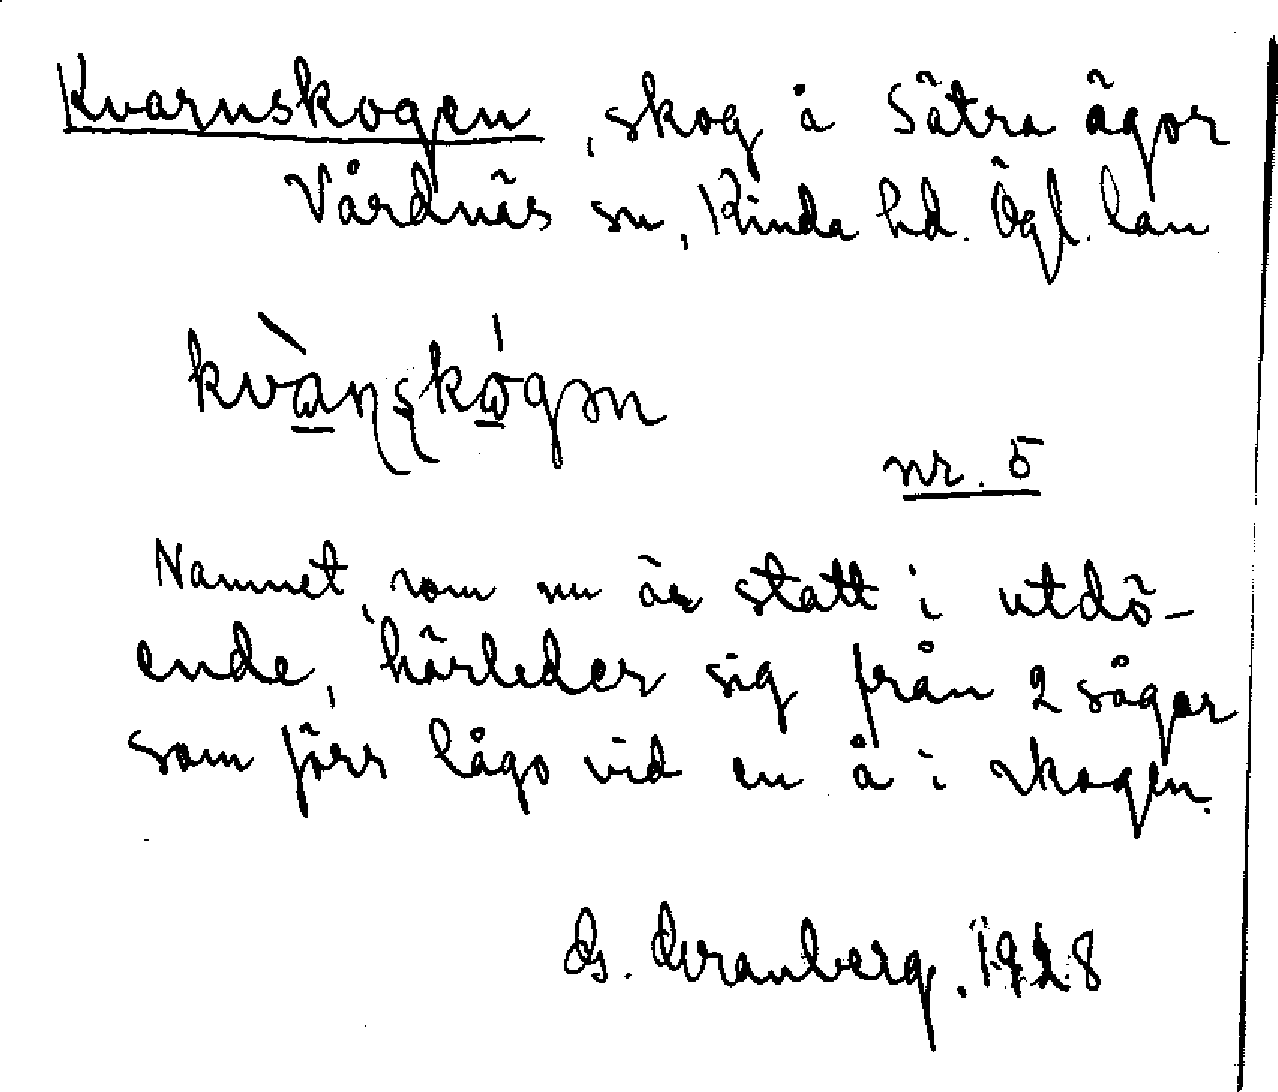 Kvarnskogen, skog å Sätra ägor
Vårdnäs sn, Kinda hd. Ögl. län
nr. 5
Namnet, som nu är statt i utdö-
ende, härleder sig från 2 sågar
som förr lågo vid en å i skogen.
G. Granberg. 1928